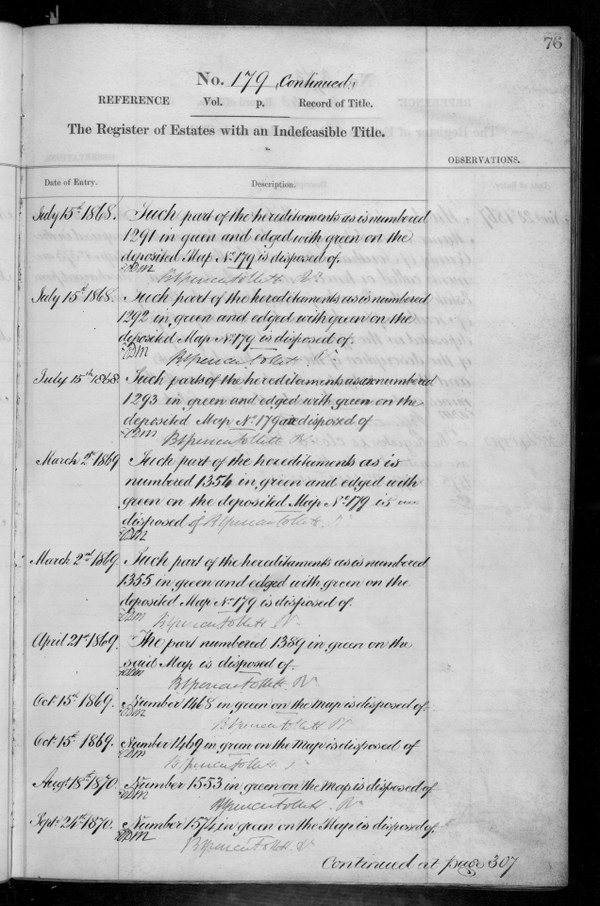 76
No. 179 (Continued)
REFERENCE Vol. p. Record of Title.
The Register of Estates with an Indefeasible Title.
OBSERVATIONS.
Date of Entry. Description.
July 15th 1868. Such part of the hereditaments as is numbered
1291 in green and edged with green on the
deposited Map No 179 is disposed of.
July 15th 1868. Such part of the hereditaments as is numbered
1292 in green and edged with green on the
deposited Map No 179 is disposed of.
July 15th 1868. Such part of the hereditaments as is numbered
1293 in green and edged with green on the
deposited Map No 179 is disposed of
March 2nd 1869 Such part of the hereditaments as is
numbered 1354 in green and edged with
green on the deposited Map No 179 is
disposed of
March 2nd 1869. Such part of the hereditaments as is numbered
1355 in green and edged with green on the
deposited Map No 179 is disposed of.
April 21st 1869. The part numbered 1389 in green on the
said Map is disposed of.
Oct 15th 1869. Number 1468 in green on the Map is disposed of.
Oct 15th 1869. Number 1469 in green on the Map is disposed of
Augt 18th 1870. Number 1553 in green on the Map is disposed of
Sept 24th 1870. Number 1574 in green on the Map is disposed of.
Continued at page 307